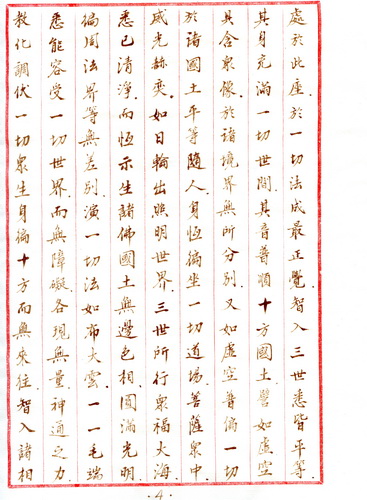 處於此座於一切法成最正覺智入三世悉皆平等
其身充滿一切世間其音普順十方國土譬如虛空
具含眾像於諸境界無所分別又如虛空普徧一切
於諸國土平等隨入身恆徧坐一切道場菩薩眾中
威光赫奕如日輪出照明世界三世所行眾福大海
悉已清淨而恆示生諸佛國土無邊色相圓滿光明
徧周法界等無差別演一切法如布大雲一一毛端
悉能容受一切世界而無障礙各現無量神通之力
教化調伏一切眾生身徧十方而無來往智入諸相
.4.